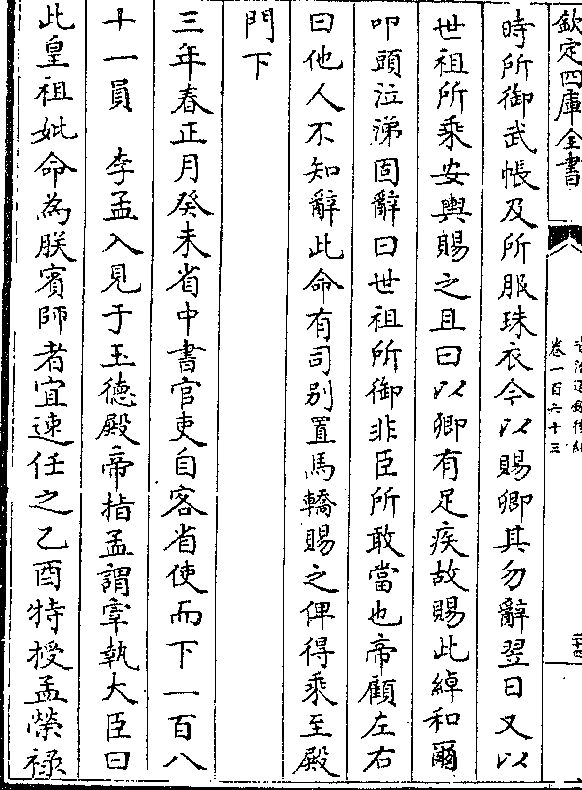 欽定四庫全書
卷一百六十三
時所御武帳及所服珠衣今以賜卿其勿辭翌日又以
世祖所乘安輿賜之且曰以卿有足疾故賜此綽和爾
叩頭泣涕固辭曰世祖所御非臣所敢當也帝顧左右
曰他人不知辭此命有司别置馬轎賜之俾得乘至殿
門下
三年春正月癸未省中書官吏自客省使而下一百八
十一員 李孟入見于玉德殿帝指孟謂宰執大臣曰
此皇祖妣命為朕賓師者宜速任之乙酉特授孟榮祿